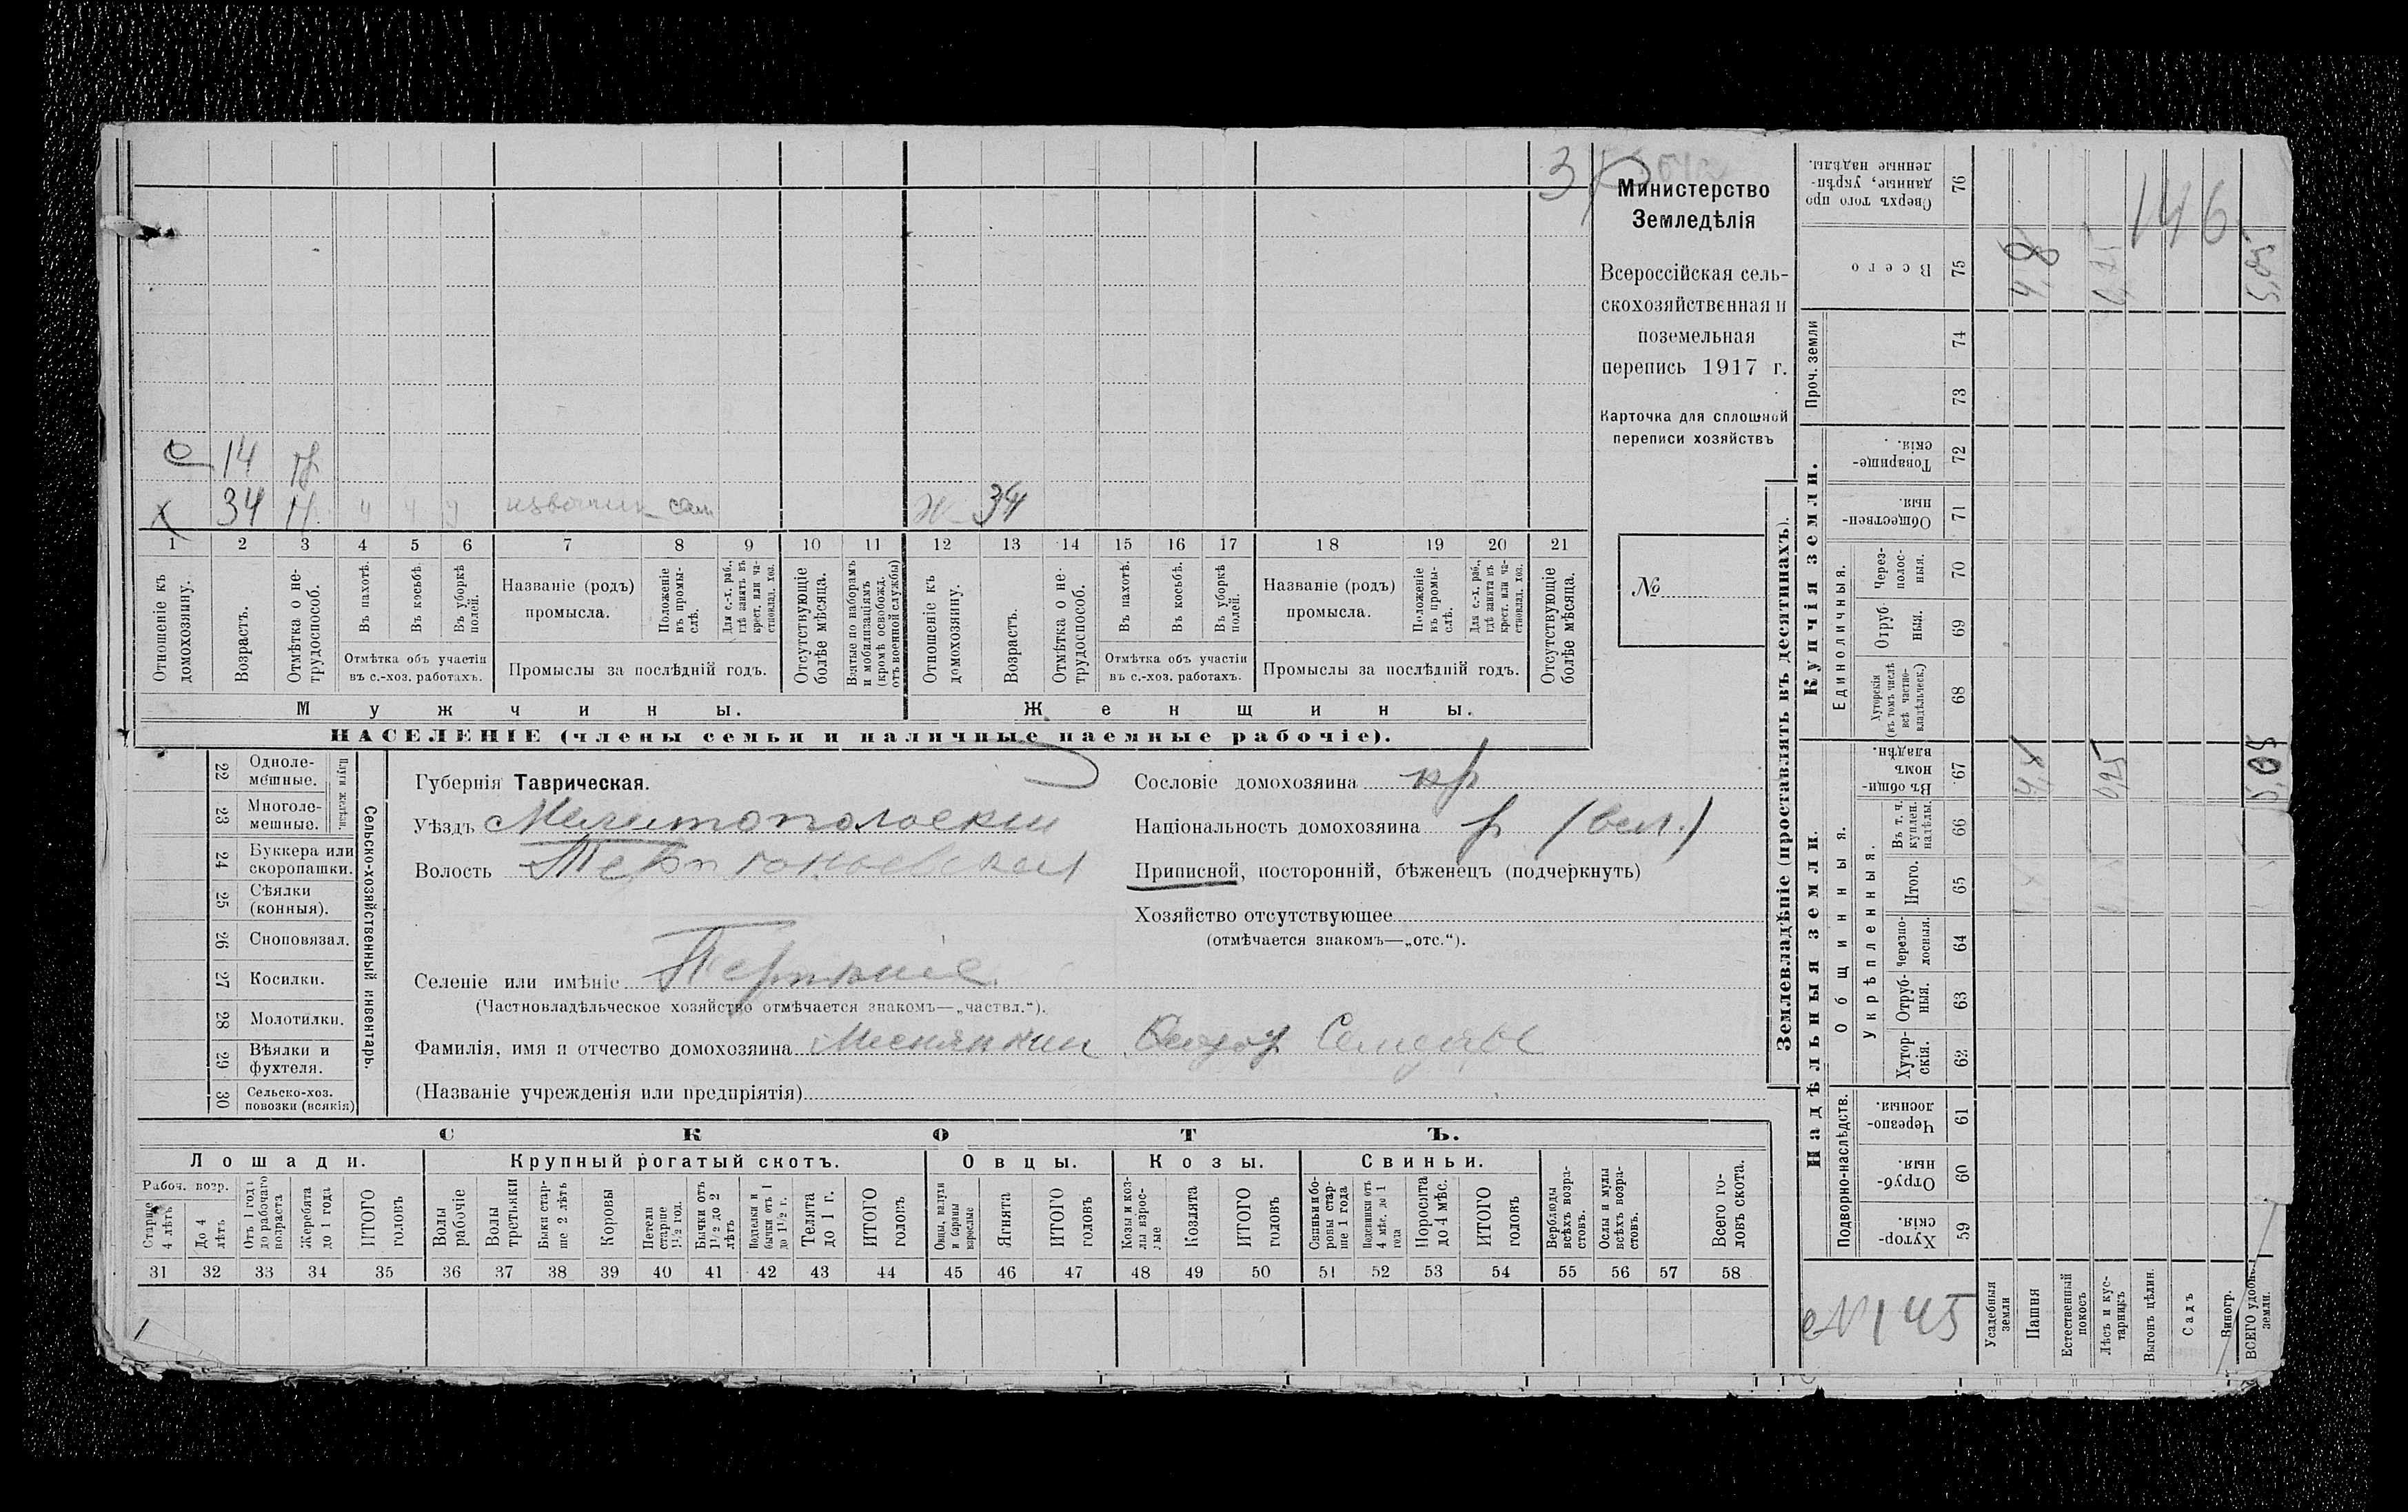 146
34 Н. извозчик сам Ж 34
14
1 2 3 4 5 6 7 8 9 10 11 12 13 14 15 16 17 18 19 20 21
Отношеніе къ домохозяину.
Возрастъ.
Отмѣтка о не-трудоспособ.
Въ пахотѣ.
Въ косьбѣ.
Въ уборкѣ полей.
Отмѣтка объ участіи
въ с.-хоз. работахъ.
Названіе (родъ)
промысла.
Положеніе въ промы-слѣ.
Для с.-х. раб., гдѣ занятъ въ крест. или ча-стновлад. хоз.
Промыслы за послѣдній годъ.
Отсутствующіе болѣе мѣсяца.
Взятые по наборамъ и мобилизаціямъ (кромѣ освобожд. отъ военной службы)
Отношеніе къ домохозяину.
Возрастъ.
Отмѣтка о не-трудоспособ.
Въ пахотѣ.
Въ косьбѣ.
Въ уборкѣ полей.
Отмѣтка объ участіи
въ с.-хоз. работахъ.
Названіе (родъ)
промысла.
Положеніе въ промы-слѣ.
Для с.-х. раб., гдѣ занята въ крест. или ча-стновлад. хоз.
Промыслы за послѣдній годъ.
Отсутствующіе болѣе мѣсяца.
Мужчины.
Женщины.
НАСЕЛЕНІЕ (члены семьи и наличные наемные рабочіе).
Министерство
Земледѣлія
Всероссійская сель-
скохозяйственная и
поземельная
перепись 1917 г.
Карточка для сплошной
переписи хозяйствъ
№
22 Одноле-мешные.
23 Многоле-мешные.
Плуги желѣзн.
24 Буккера или скоропашки.
25 Сѣялки (конныя).
26 Сноповязал.
27 Косилки.
28 Молотилки.
29 Вѣялки и фухтеля.
30 Сельско-хоз. повозки (всякія)
Сельско-хозяйственный инвентарь.
Губернія Таврическая.
Уѣздъ Мелитопольскій
Волость
Селеніе или имѣніе
(Частновладѣльческое хозяйство отмѣчается знакомъ—„частвл.“).
Фамилія, имя и отчество домохозяина
(Названіе учрежденія или предпріятія)
Сословіе домохозяина кр
Національность домохозяина р (вел.)
Приписной, посторонній, бѣженецъ (подчеркнуть)
Хозяйство отсутствующее
(отмѣчается знакомъ—„отс.“).
СКОТЪ.
Лошади. Крупный рогатый скотъ. Овцы. Козы. Свиньи.
Рабоч. возр.
Старше 4 лѣтъ
До 4 лѣтъ
Отъ 1 года до рабочаго возраста
Жеребята до 1 года
ИТОГО головъ
Волы рабочіе
Волы третьяки
Быки стар-ше 2 лѣтъ
Коровы
Нетели старше 1½ год.
Бычки отъ 1½ до 2 лѣтъ
Подтелки и бычки отъ 1 до 1½ г.
Телята до 1 г.
ИТОГО головъ
Овцы, валухи и бараны взрослые
Ягнята
ИТОГО головъ
Козы и коз-лы взрос-лые
Козлята
ИТОГО головъ
Свиньи и бо-ровы стар-ше 1 года
Подсвинки отъ 4 мѣс. до 1 года
Поросята до 4 мѣс.
ИТОГО головъ
Верблюды всѣхъ возра-стовъ.
Ослы и мулы всѣхъ возра-стовъ.
Всего го-ловъ скота.
31 32 33 34 35 36 37 38 39 40 41 42 43 44 45 46 47 48 49 50 51 52 53 54 55 56 57 58
Землевладѣніе (проставлять въ десятинахъ).
Надѣльныя земли.
Купчія земли.
Проч. земли
Подворно-наслѣдств.
Общинныя.
Укрѣпленныя.
Единоличныя.
Сверхъ того про-данные, укрѣп-ленные надѣлы. 76
Всего 75
74
73
Товарище-скія. 72
Обществен-ныя. 71
Через-полос-ныя. 70
Отруб-ныя. 69
Хуторскія (въ томъ числѣ всѣ частно-владѣльческ.) 68
Въ общин-номъ владѣн. 67
Въ т. ч. куплен. надѣлы. 66
Итого. 65
Черезпо-лосныя. 64
Отруб-ныя. 63
Хутор-скія. 62
Черезпо-лосныя. 61
Отруб-ныя. 60
Хутор-скія. 59
4,8
5,05
4,8
0,25
5,05
№145
Усадебныя земли
Пашня
Естественный покосъ
Лѣсъ и кус-тарникъ
Выгонъ цѣлин.
Садъ
Виногр.
ВСЕГО удобн. земли.